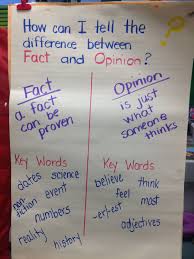 How can I tell the
difference between
Fact and Opinion?
?
Fact
a fact
can be
proven
Opinion
is just
what
someone
thinks
Key Words
dates science
non-
fiction event
numbers
reality
history
Key Words
believe think
feel most
-er/est
adjectives